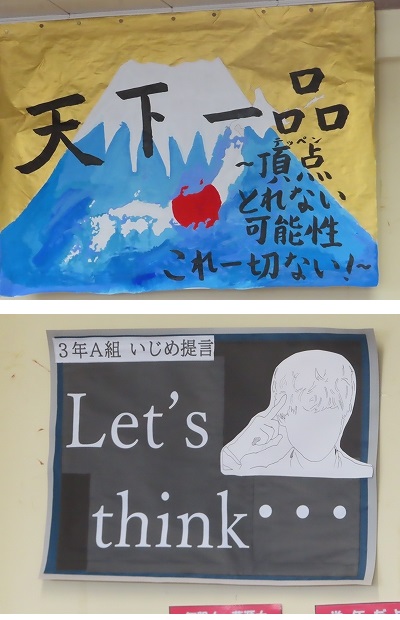 天下一品
テッペン
~頂点
とれない
可能性
これ一切ない!~
3年A組 いじめ提言
Let's
think・・・